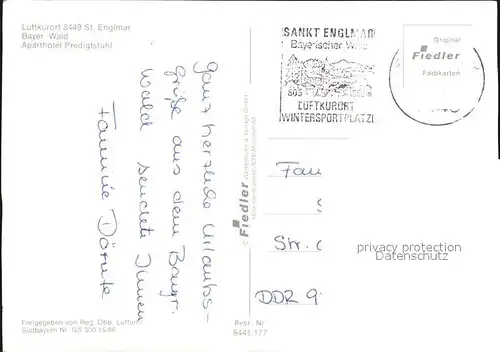 Luftkurort 8449 St. Englmar
Bayer. Wald
Aparthotel Predigtstuhl
Ganz herzliche Urlaubs-
grüße aus dem Bayr.
Wald sendet Ihnen
Familie
Freigegeben von Reg. Obb. Luftamt
Südbayern Nr. GS 300
© Fiedler
Best. Nr
8441/177
SANKT ENGLMAR
Bayerischer Wald
LUFTKURORT
WINTERSPORTPLATZ
Original
Fiedler
Farbkarten
Fam
Str.
DDR 9
privacy protection
Datenschutz